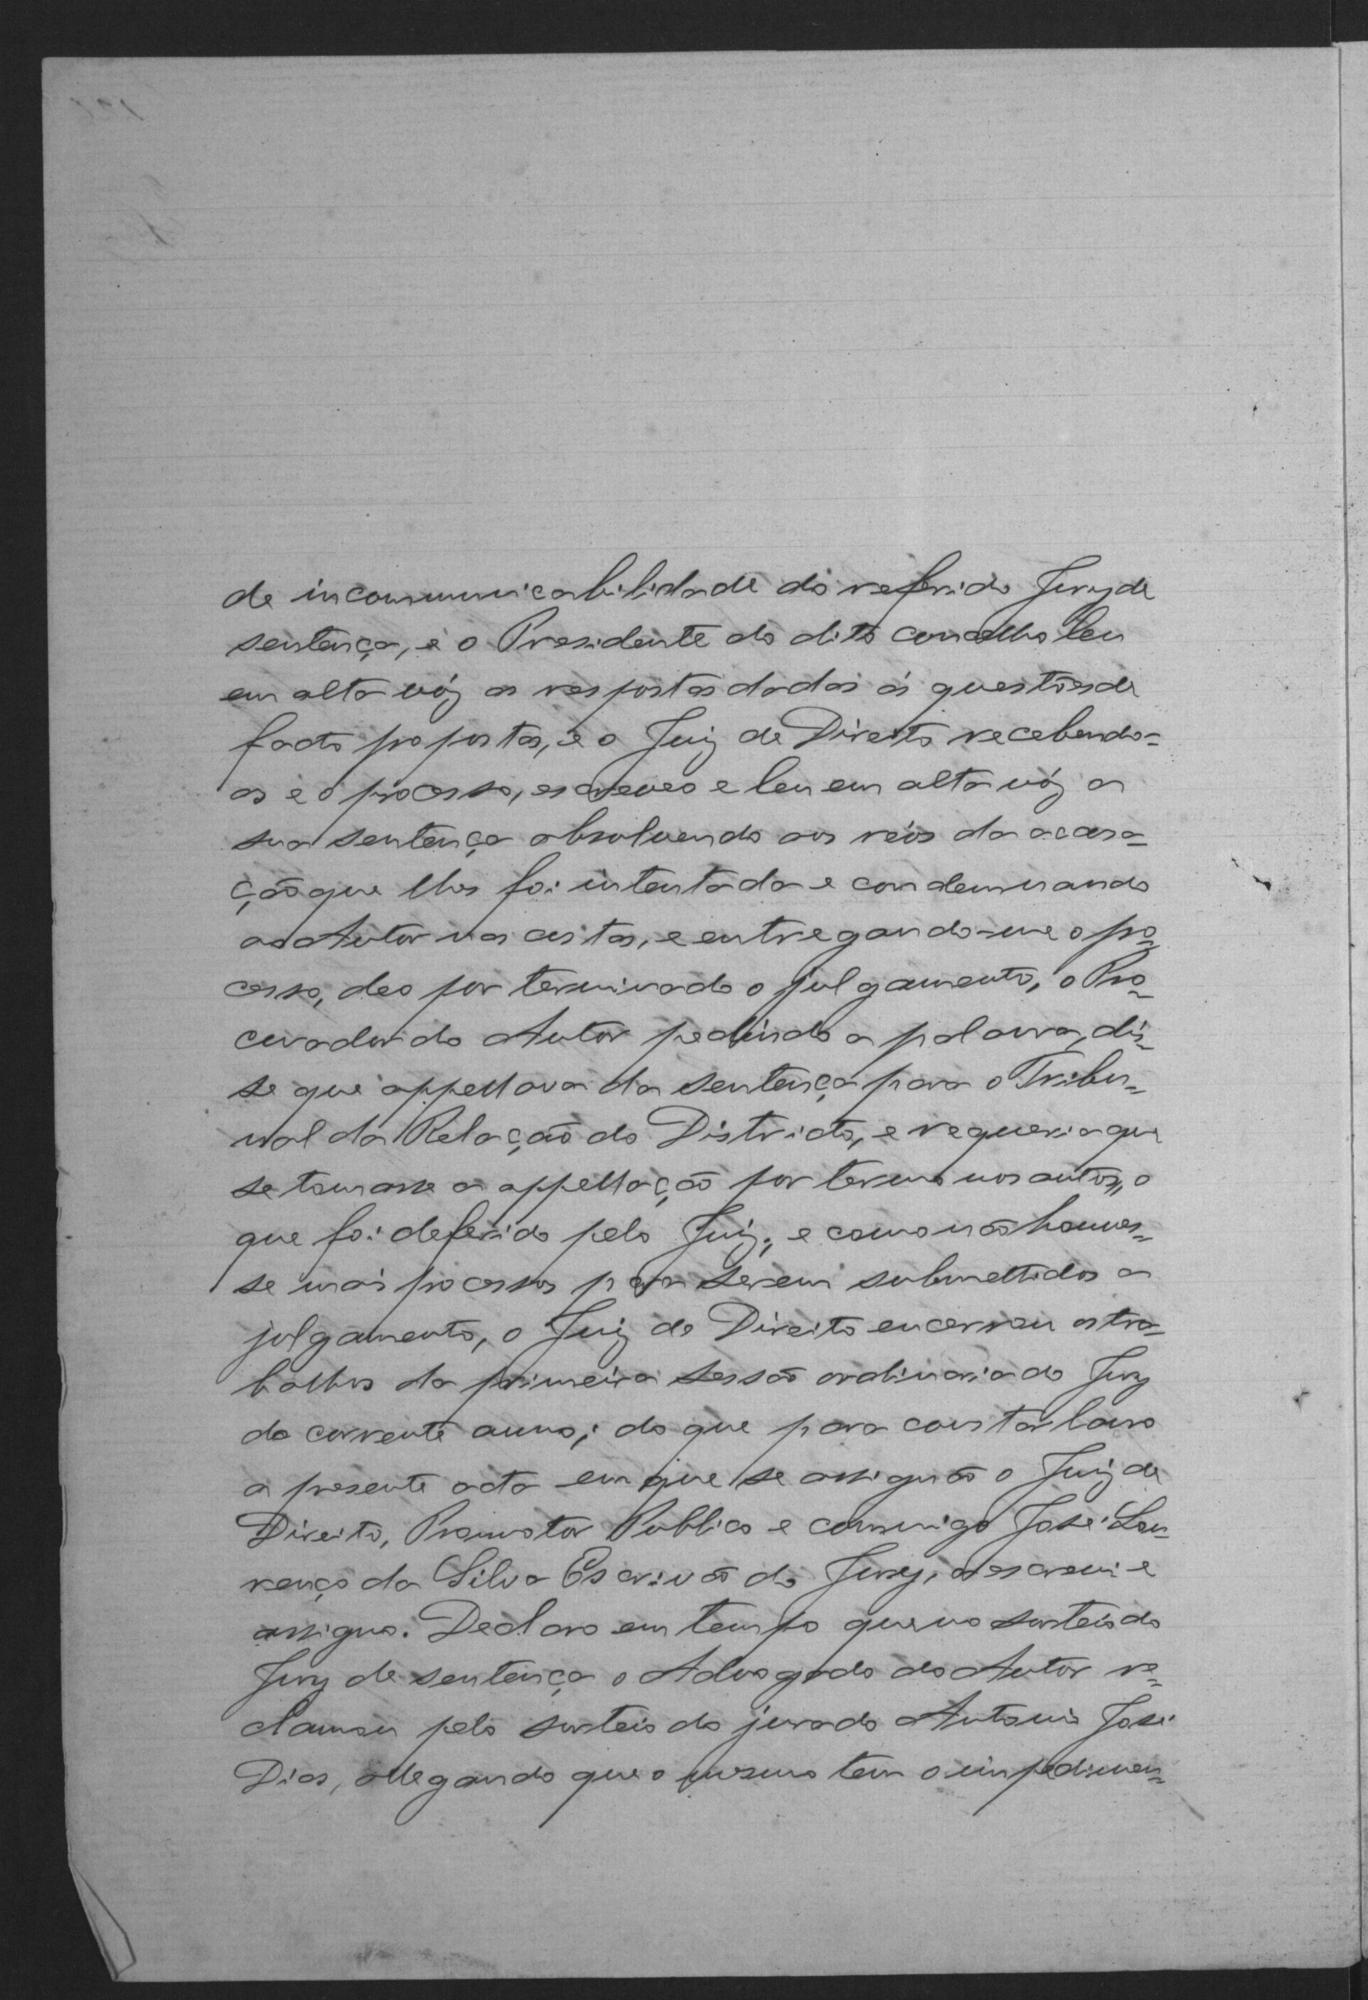 de incommunicabilidade do referido Jury de
sentença, e o Presidente do dito concelho leu
em alta vóz as respostas dadas ás questões de
facto propostas, e o Juiz de Direito recebendo-
as e o processo, escreveo e leu em alta vóz a
sua sentença absolvendo aos réos da acusa=
ção que lhes foi intentada e condemnando
ao Autor nas custas, e entregando-me o pro=
cesso, deo por terminado o julgamento, o Pro=
curador do Autor pedindo a palavra, dis=
se que appellava da sentença para o Tribu=
nal da Relação do Districto, e requeria que
se tomasse a appellação por termo nos autos, o
que foi deferido pelo Juiz; e como não houves=
se mais processos para serem submettidos a
julgamento, o Juiz de Direito encerrou os tra=
balhos da primeira sessão ordinaria do Jury
do corrente anno; do que para constar lavro
a presente acta em que se assignão o Juiz de
Direito, Promotor Publico e commigo José Lou=
renço da Silva Escrivão do Jury, o escrevi e
assigno. Declaro em tempo que no sorteio do
Jury de sentença o Advogado do Autor re=
clamou pelo sorteio do jurado Antonio José
Dias, allegando que o mesmo tem o impedimen=